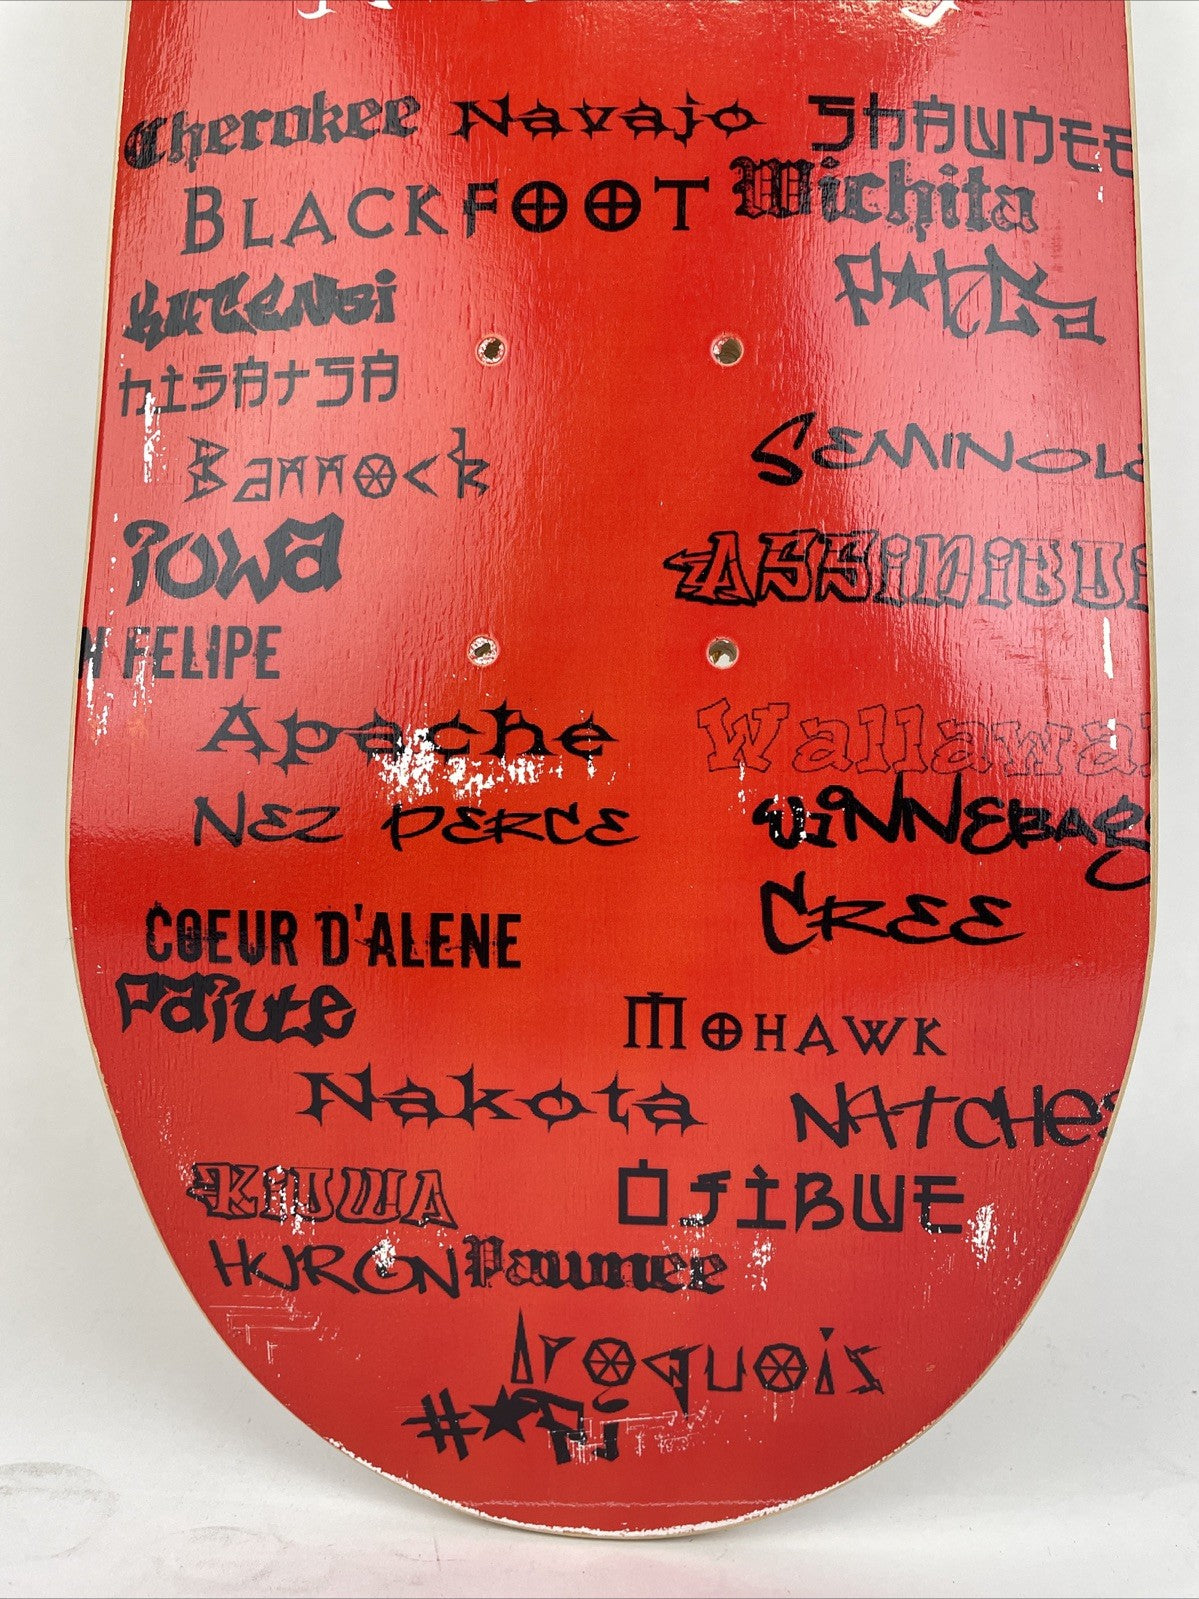 Cherokee Navajo SHAWNEE
BLACKFOOT Wichita
hisatsa
Bannock SEMINOLE
iowa ASSiNiBOI
N FELIPE
Apache Wallawal
NEZ PERCE WiNNEBAGO
COEUR D'ALENE CREE
Paiute MOHAWK
Nakota NATCHES
KiOWA OJIBWE
HURON Pawnee
Iroquois